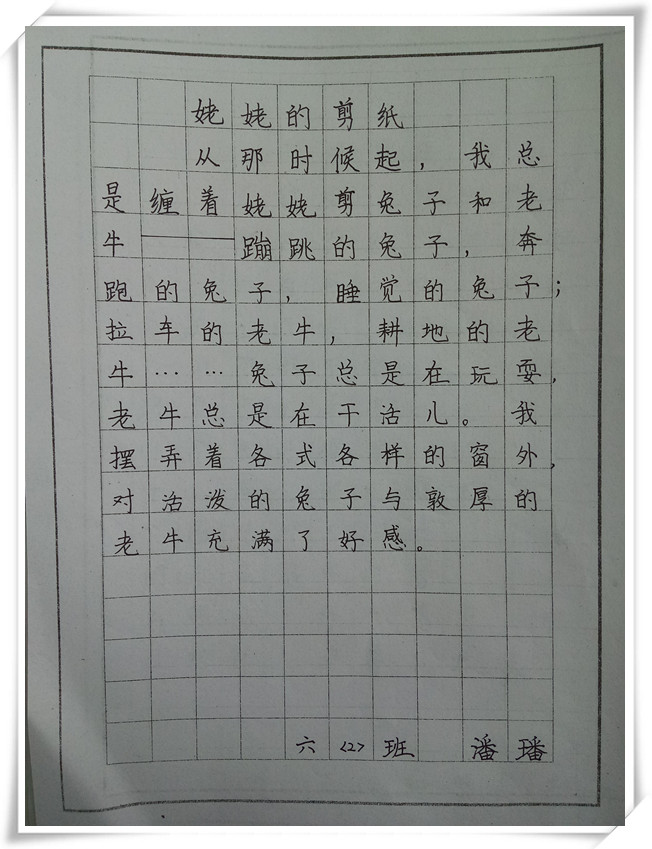 姥姥的剪纸
从那时候起，我总
是缠着姥姥剪兔子和老
牛——蹦跳的兔子，奔
跑的兔子，睡觉的兔子；
拉车的老牛，耕地的老
牛……兔子总是在玩耍，
老牛总是在干活儿。我
摆弄着各式各样的窗外，
对活泼的兔子与敦厚的
老牛充满了好感。
六<2>班 潘璠